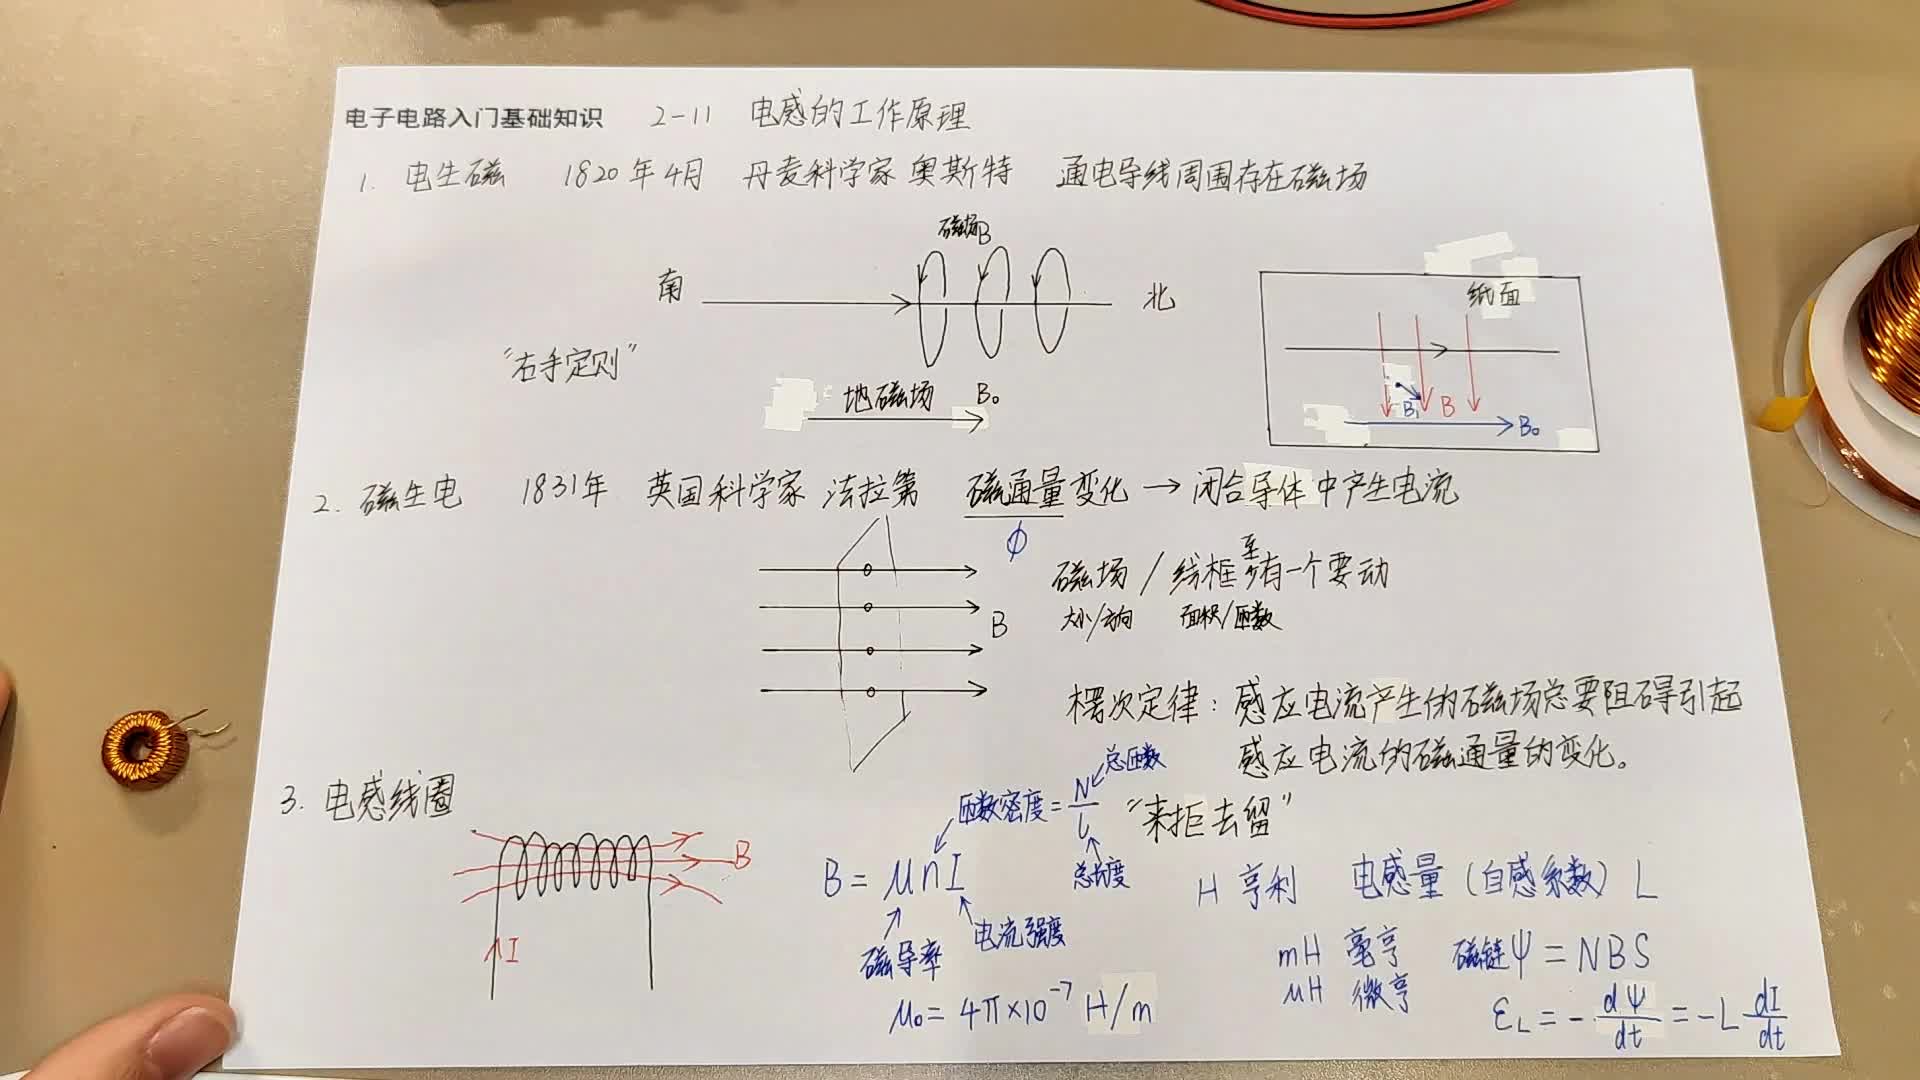 电子电路入门基础知识 2-11 电感的工作原理
1. 电生磁 1820年4月 丹麦科学家 奥斯特 通电导线周围存在磁场
磁场B
南
北
"右手定则"
地磁场 B₀
纸面
B₁
B
B₀
2. 磁生电 1831年 英国科学家 法拉第 磁通量变化 → 闭合导体中产生电流
ϕ
磁场 / 线框至少有一个要动
大小/方向 面积/匝数
B
楞次定律：感应电流产生的磁场总要阻碍引起
感应电流的磁通量的变化。
"来拒去留"
3. 电感线圈
B
I
匝数密度 = N/l
总匝数
总长度
B = μnI
磁导率
电流强度
μ₀ = 4π×10⁻⁷ H/m
H 亨利 电感量（自感系数）L
mH 毫亨 磁链ψ = NBS
μH 微亨
ε_L = -dψ/dt = -L dI/dt